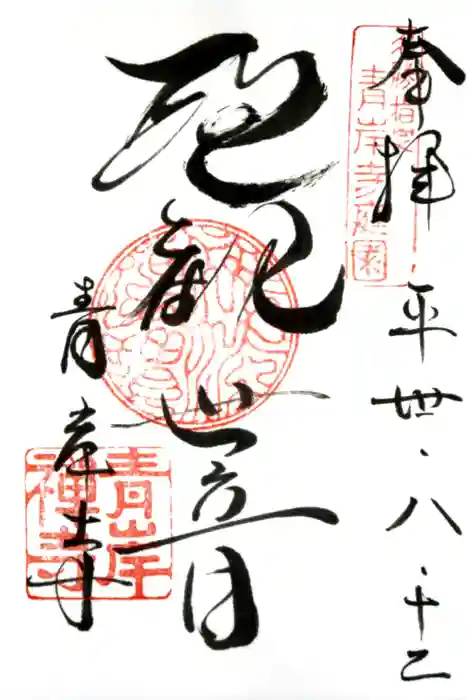 奉拝
平卅・八・十二
青岸寺庭園
聖観世音
青岸寺
青岸
禅寺